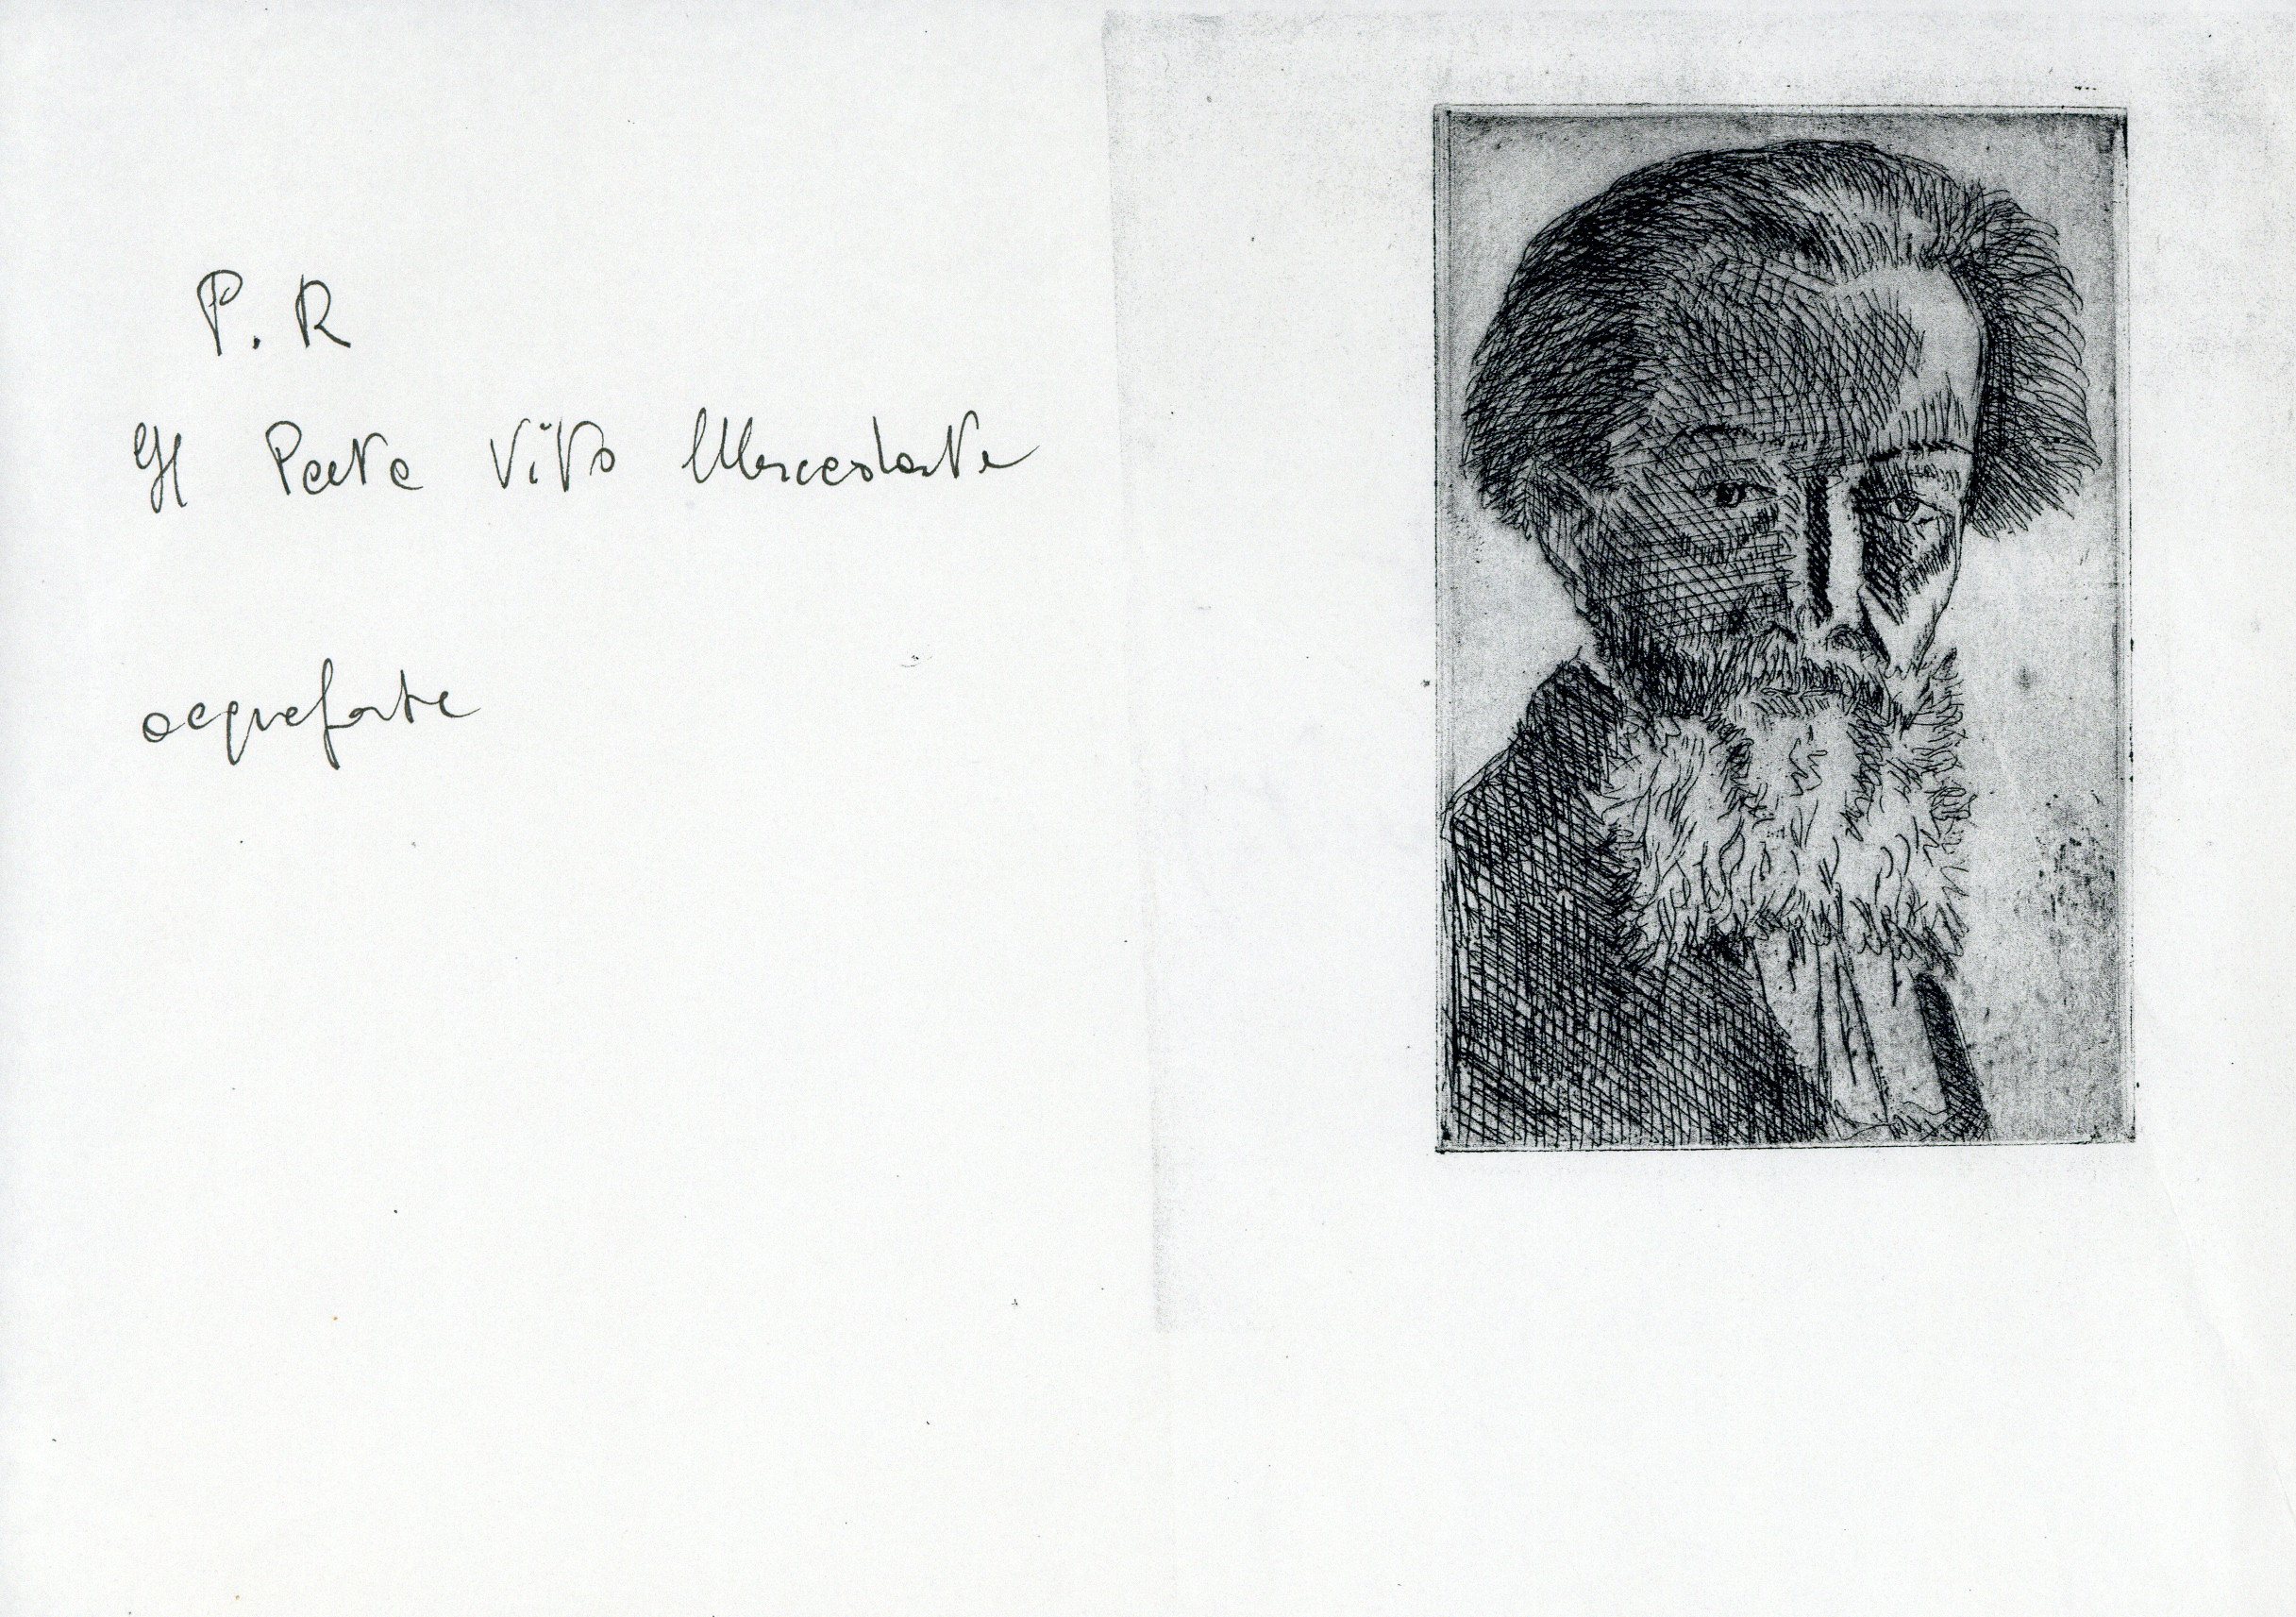 P. R
Il Poeta Vito Moscadante
acquaforte